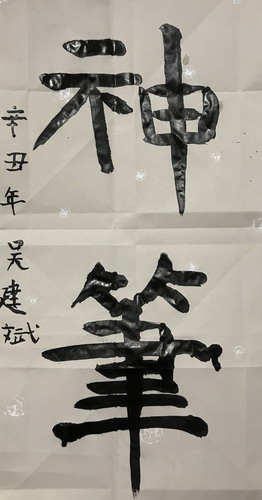 神筆
辛丑年 吴建斌